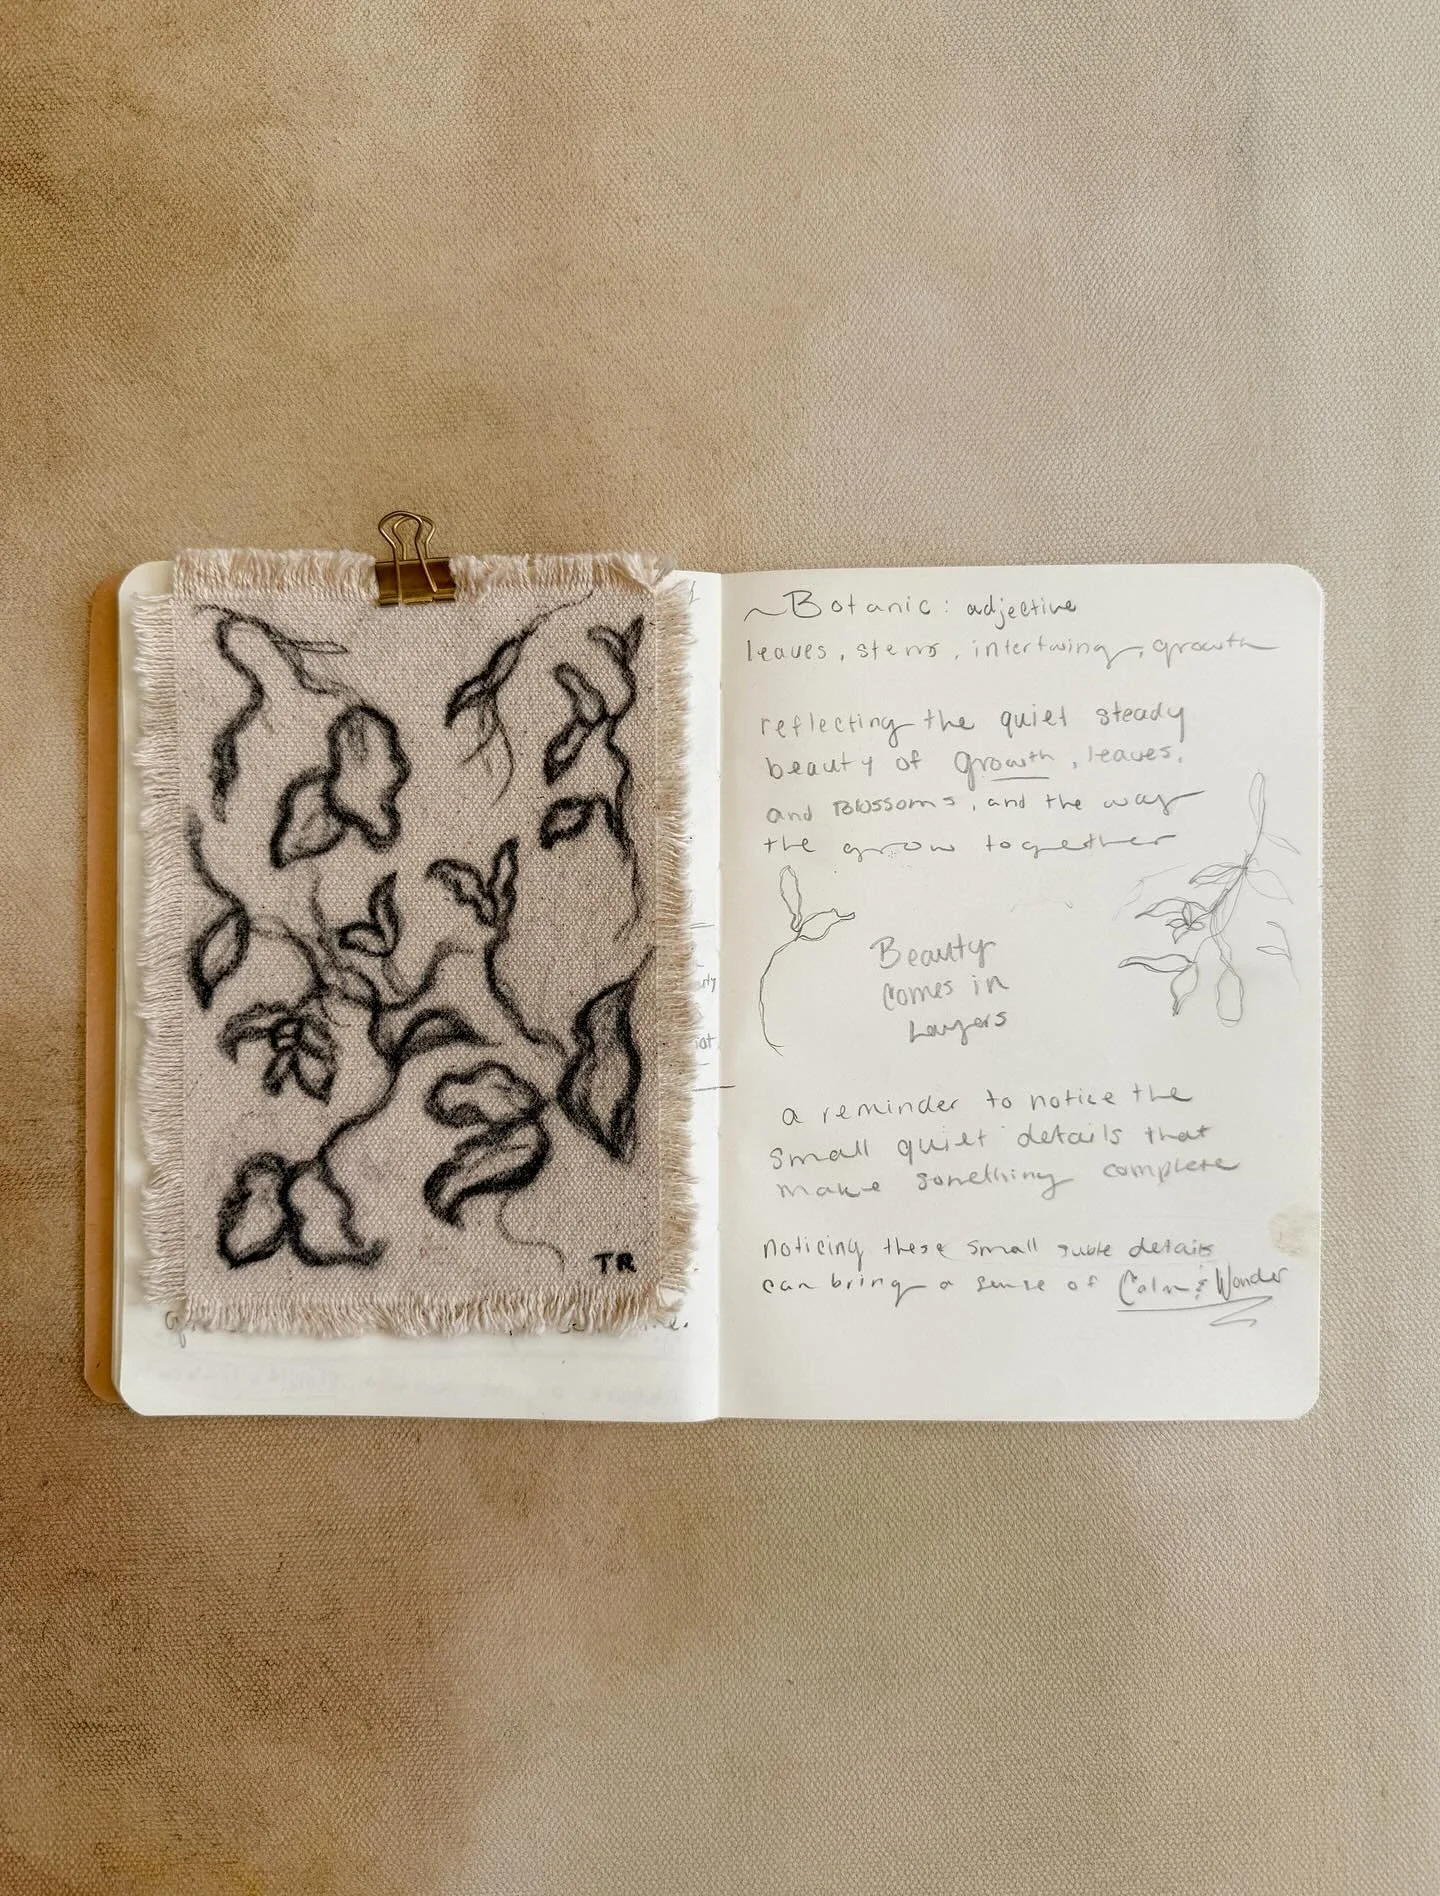 TR
~Botanic: adjective
leaves, stems, intertwing, growth
reflecting the quiet steady
beauty of growth, leaves,
and Blossoms, and the way
the grow together
Beauty
Comes in
Layers
a reminder to notice the
small quiet details that
make something complete
noticing these small suble details
can bring a sense of Calm & Wonder